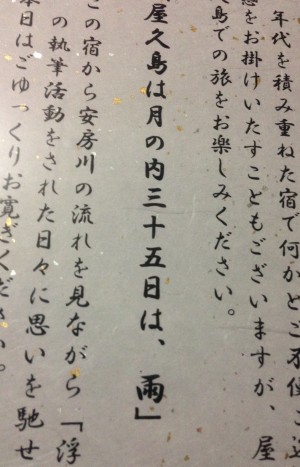 年代を積み重ねた宿で何かとご不便ご迷
惑をお掛けいたすこともございますが、屋
久島での旅をお楽しみください。
屋久島は月の内三十五日は、雨」
この宿から安房川の流れを見ながら「浮
の執筆活動をされた日々に思いを馳せ
本日はごゆっくりお寛ぎください。